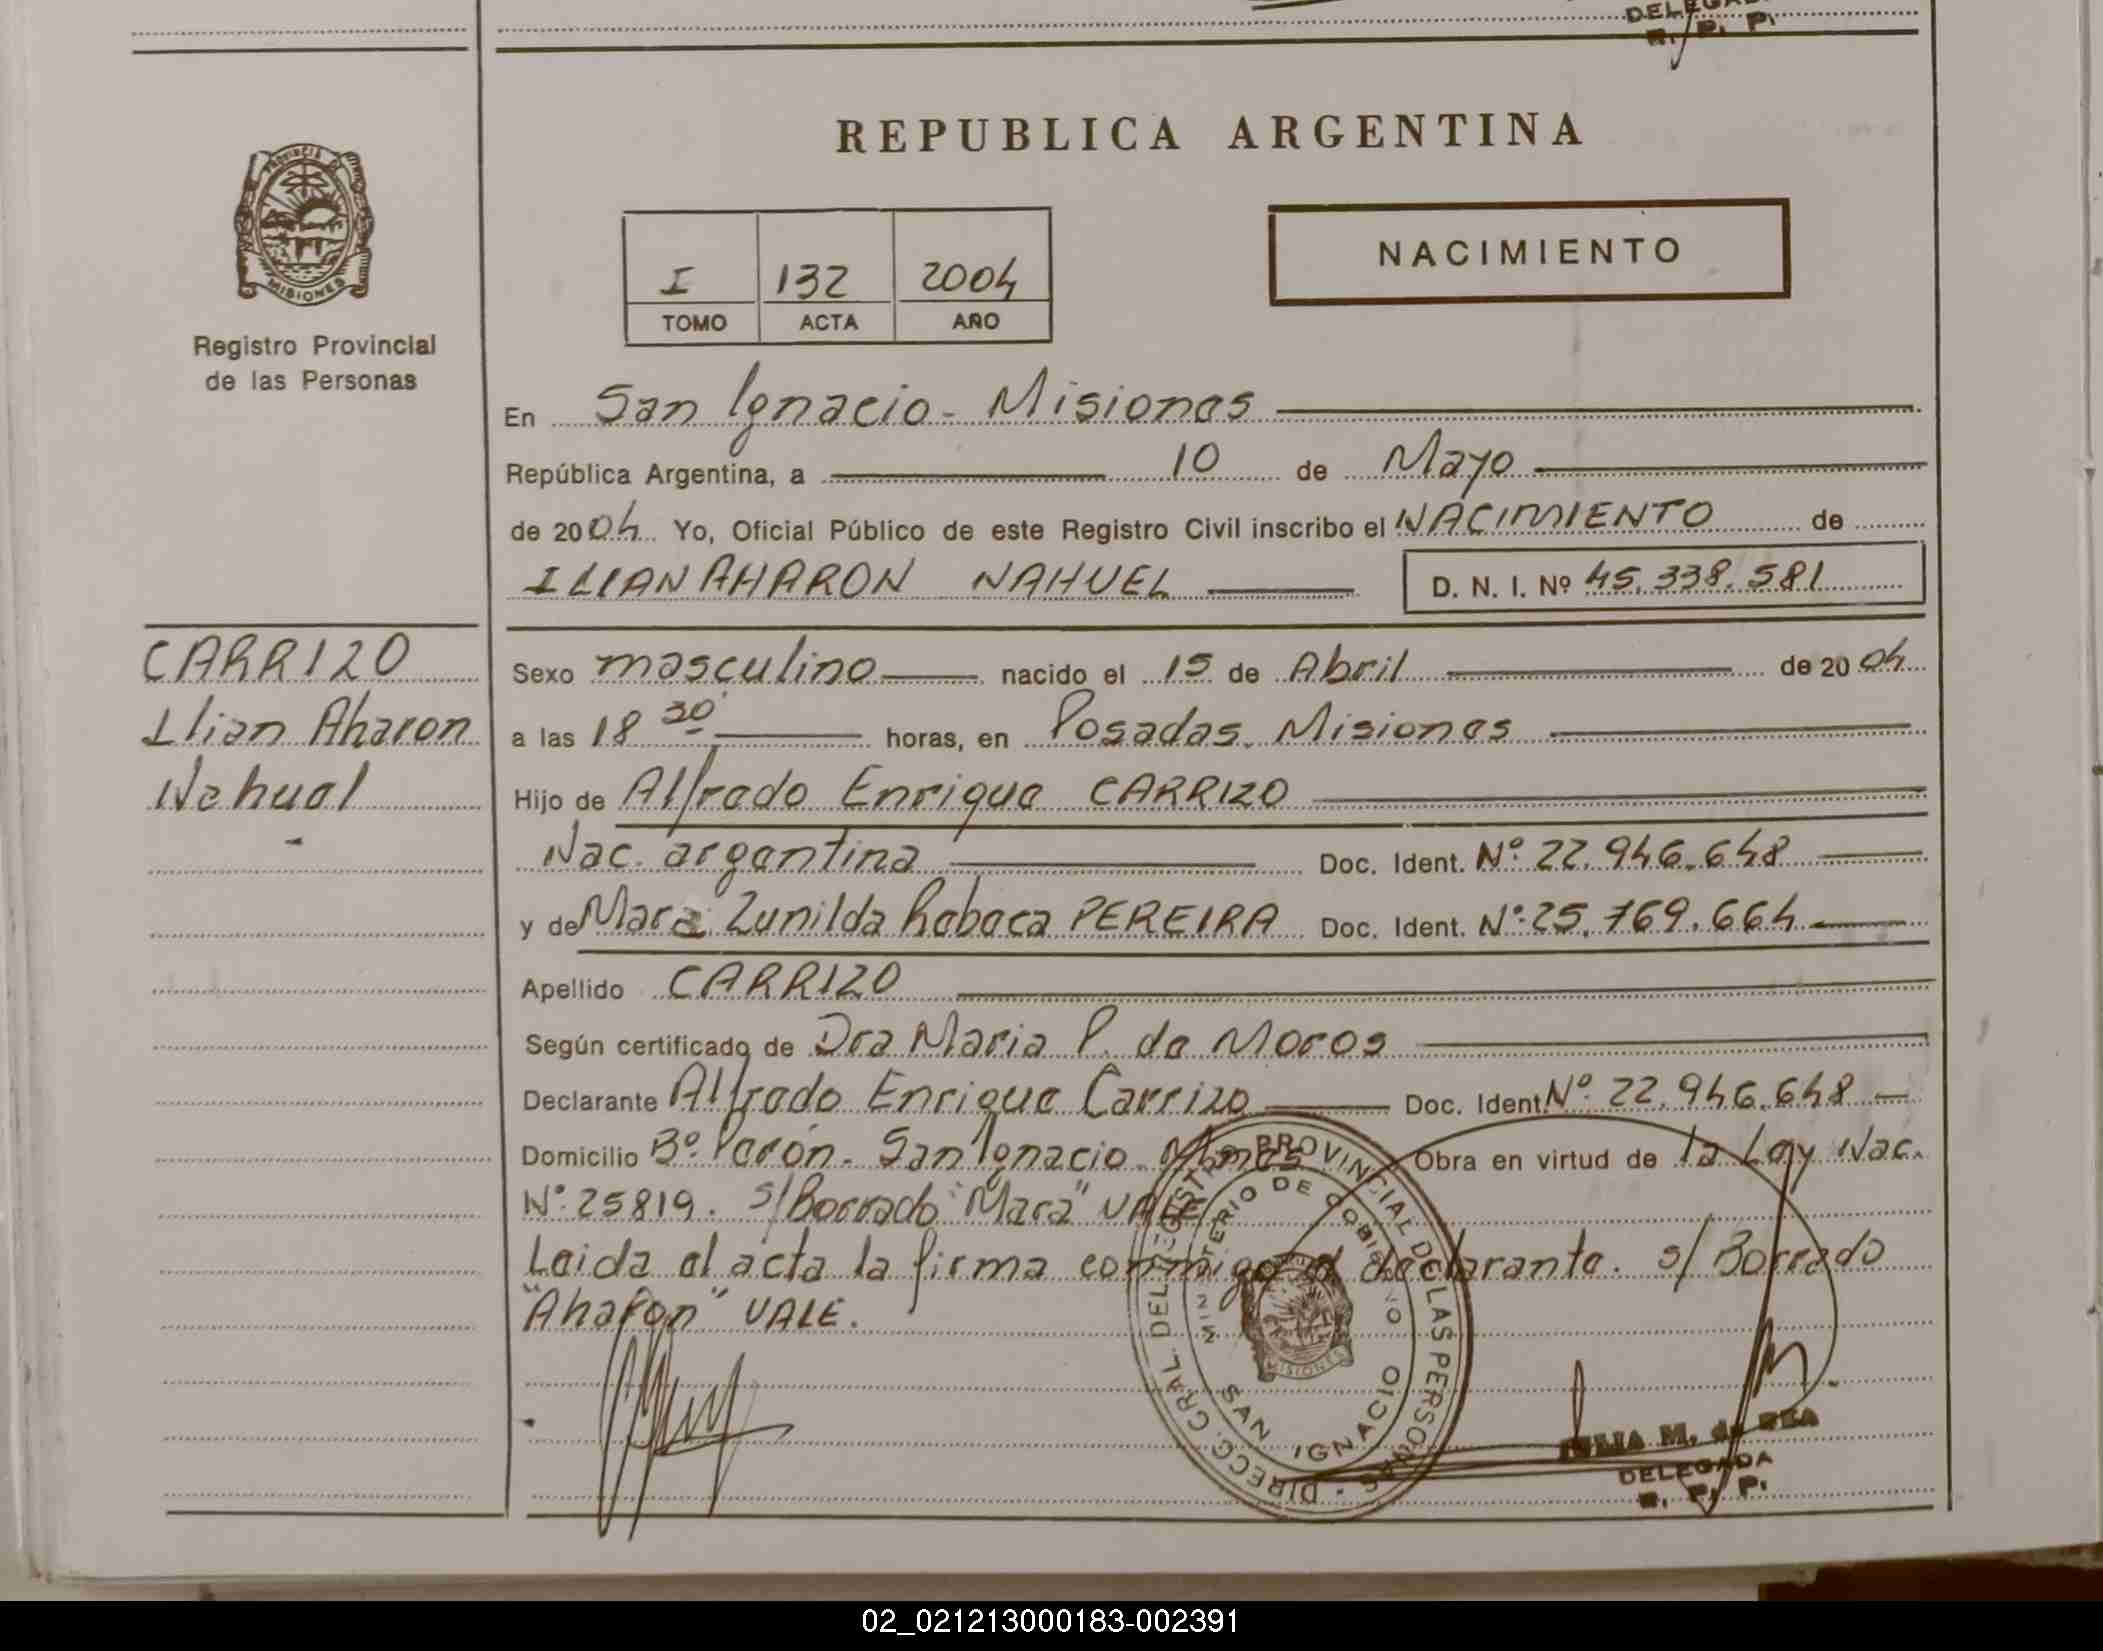 DELEGADA
R. P. P.
REPUBLICA ARGENTINA
PROVINCIA DE
MISIONES
Registro Provincial
de las Personas
I 132 2004
TOMO ACTA AÑO
NACIMIENTO
En San Ignacio - Misiones
República Argentina, a 10 de Mayo
de 2004 Yo, Oficial Público de este Registro Civil inscribo el NACIMIENTO de
ILIAN AHARON NAHUEL D. N. I. Nº 45.338.581
CARRIZO
Ilian Aharon
Nahuel
Sexo masculino nacido el 15 de Abril de 2004
a las 18 30' horas, en Posadas. Misiones
Hijo de Alfredo Enrique CARRIZO
Nac. argentina Doc. Ident. Nº 22.946.648
y de Mara Zunilda Rebeca PEREIRA Doc. Ident. Nº 25.769.664
Apellido CARRIZO
Según certificado de Dra Maria P. de Moros
Declarante Alfredo Enrique Carrizo Doc. Ident Nº 22.946.648
Domicilio Bº Perón - San Ignacio Mnes Obra en virtud de la Ley Nac.
Nº 25819. s/Borrado "Mara" VALE
Leida el acta la firma conmigo el declarante. s/Borrado
"Aharon" VALE.
DIRECC. GRAL. DEL REGISTRO PROVINCIAL DE LAS PERSONAS -
MINISTERIO DE GOBIERNO
MISIONES
SAN IGNACIO
JULIA M. de REA
DELEGADA
R. P. P.
02_021213000183-002391